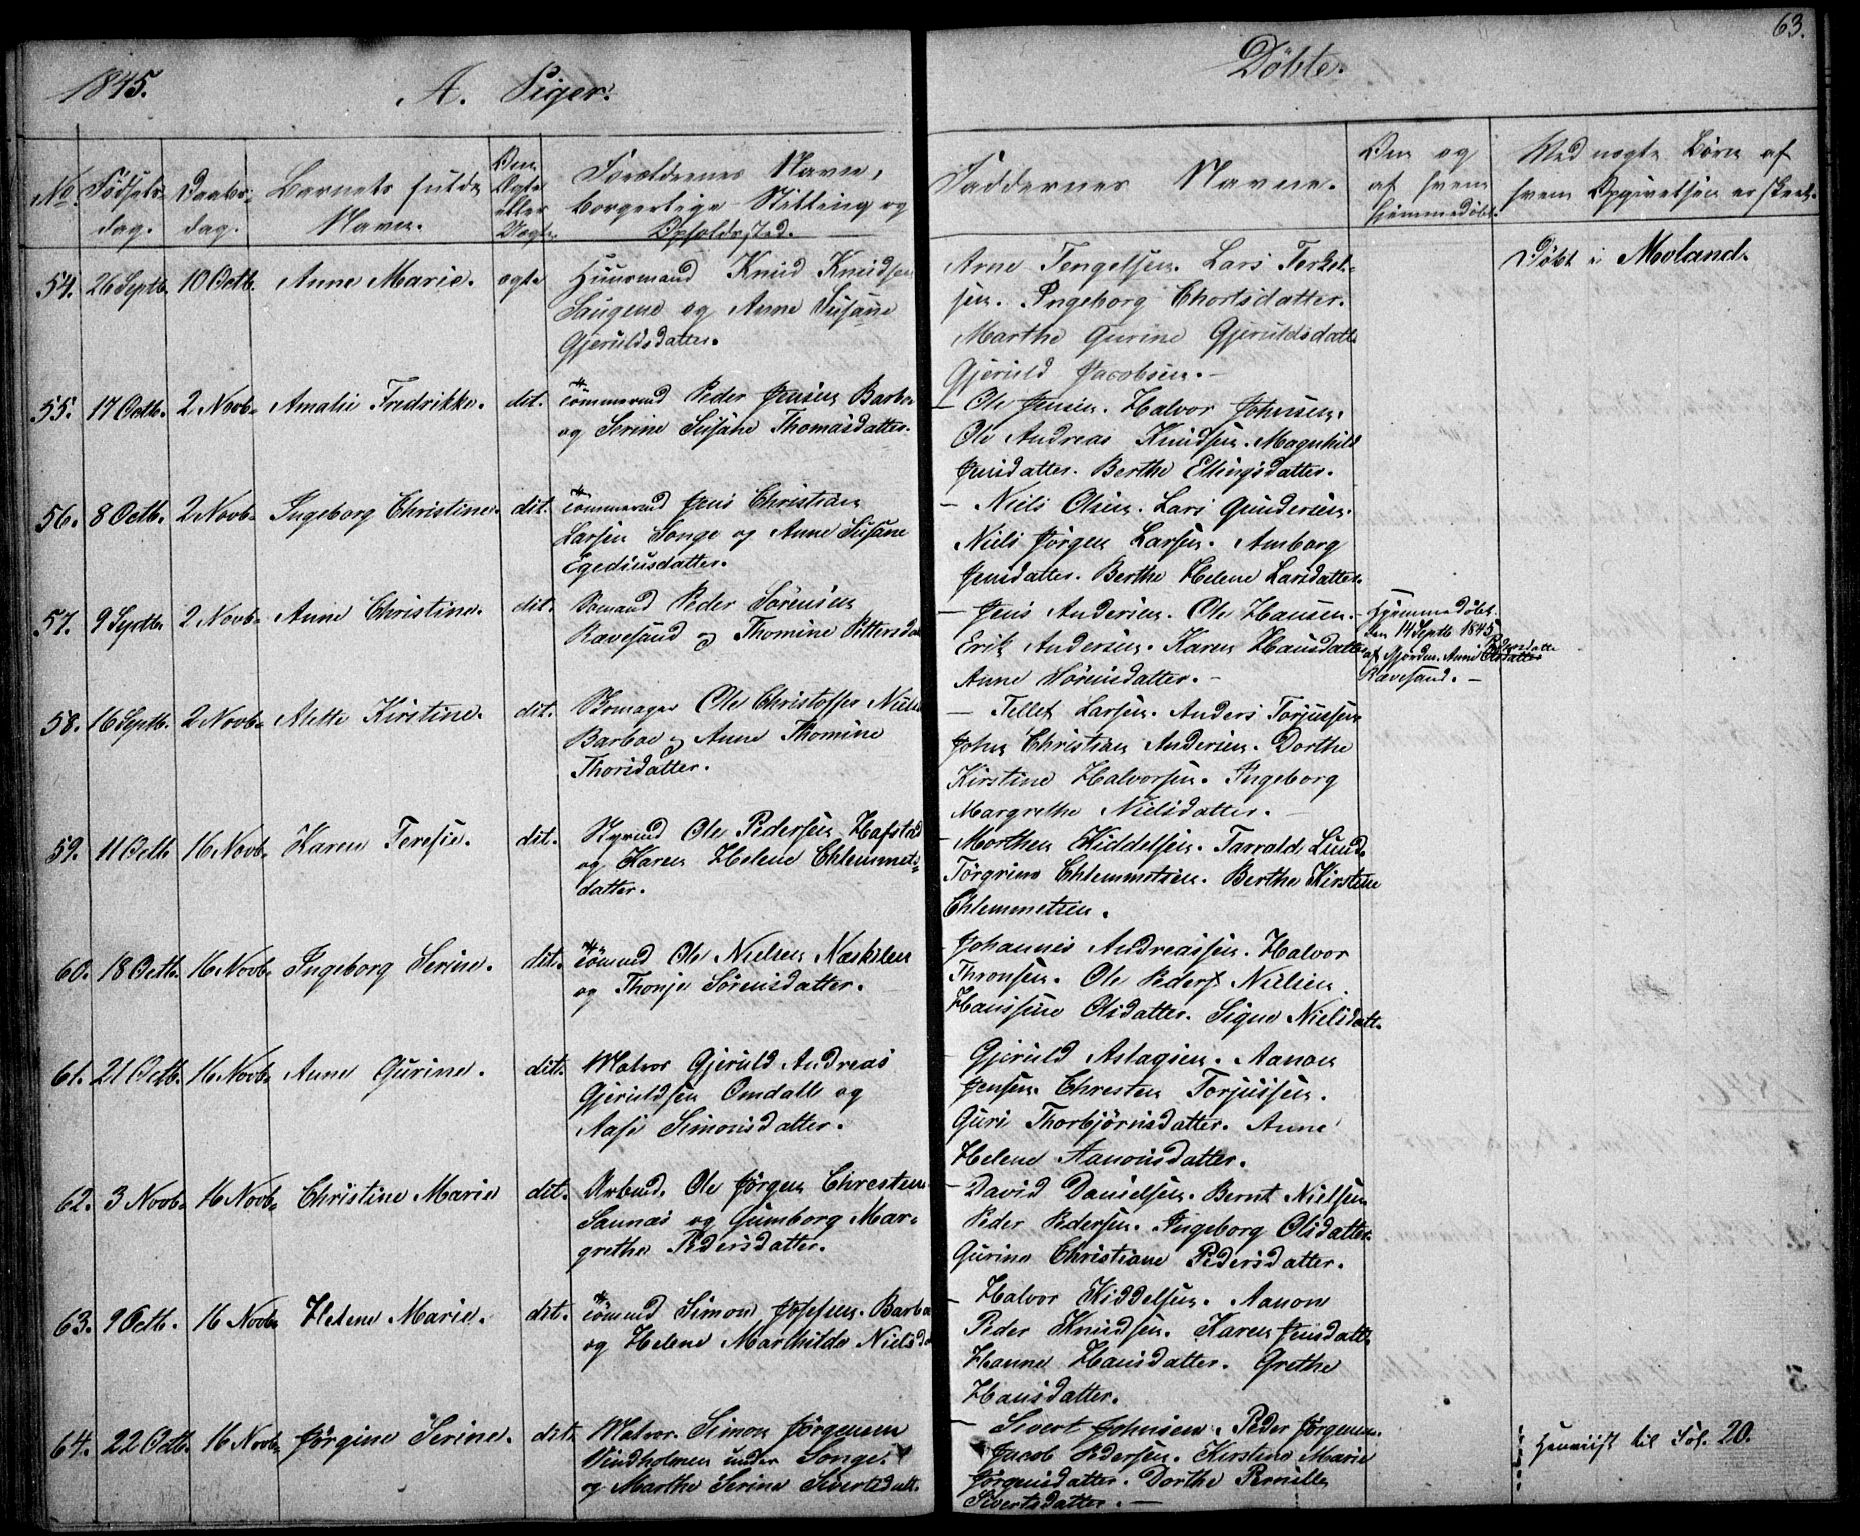 63.
1845.
A. Piger.
Döbte.
No.
Fødsels-
dag.
Daabs-
dag.
Barnets fulde
Navn.
Om
Ægte
eller
Uægte.
Forældrenes Navn,
borgerlige Stilling og
Opholdssted.
Faddernes Navne.
Om og
af hvem
hjemmedøbt.
Ved uægte Børn af
hvem Opgivelsen er skeet.
54. 26 Septb. 10 Octb. Anne Marie. ægte
Huusmand Knud Knudsen
Saugene og Anne Susane
Gjeruldsdatter.
Arne Tengelsen. Lars Terkel-
sen. Ingeborg Chortsdatter.
Marthe Gurine Gjeruldsdatt.
Gjeruld Jacobsen. -
Døbt i Moland.
55. 17 Octb. 2 Novb. Amalie Fredrikke. dit.
Tømmermd Peder Jensen Barbo
og Serine Susane Thomasdatter.
- Ole Jensen. Halvor Johnsen.
Ole Andreas Knudsen. Magnhild
Jensdatter. Berthe Ellingsdatter.
56. 8 Octb. 2 Novb. Ingeborg Christine. dit.
Tømmermd Jens Christian
Larsen Songe og Anne Susane
Egediusdatter.
- Niels Olsen. Lars Gundersen.
Niels Jørgen Larsen. Amborg
Jensdatter. Berthe Helene Larsdatter.
57. 9 Septb. 2 Novb. Anne Christine. dit.
Sømand Peder Sörensen
Ravesand og Thomine Pittersdat
- Jens Andersen. Ole Hansen.
Erik Andersen. Karen Hansdatter
Anne Sörensdatter. -
Hjemmedøbt
den 14 Septb 1845
af Jordm. Anne Olsdatter Pedersdatte
Ravesand. -
58. 16 Septb. 2 Novb. Alette Kirstine. dit.
Skomager Ole Christoffer Niels
Barboe og Anne Thomine
Thorsdatter.
- Tellef Larsen. Anders Torjussen
John Christian Andersen. Dorthe
Kirstine Halvorsen. Ingeborg
Margrethe Nielsdatter. -
59. 11 Octb. 16 Novb. Karen Teresie. dit.
Styrmd Ole Pedersen Hafstad
og Karen Helene Chlemmets-
datter.
- Morthen Kiddelsen. Tarrald Lund.
Törgrine Chlemmetsen. Berthe Kirstine
Chlemmetsen.
60. 18 Octb. 16 Novb. Ingeborg Serine. dit.
Tömmd Ole Nielsen Næskilen
og Thonje Sörensdatter.
- Johannes Andreassen. Halvor
Thronsen. Ole Peders Nielsen.
Hanssine Olsdatter. Signe Nielsdatt.
61. 21 Octb. 16 Novb. Anne Gurine. dit.
Matros Gjeruld Andreas
Gjeruldsen Omdalt og
Aase Simonsdatter.
- Gjeruld Aslagsen. Aanon
Jensen. Chresten Torjussen.
Guri Thorbjörnsdatter. Anne
Helene Aanonsdatter.
62. 3 Novb. 16 Novb. Christine Marie dit.
Arbmd. Ole Jørgen Chresten
Saunæs og Gumborg Mar-
grethe Pedersdatter.
- David Danielsen. Bernt Nielsen
Peder Pedersen. Ingeborg Olsdatter.
Gurine Christiane Pedersdatter.
63. 9 Octb. 16 Novb. Helene Marie. dit.
Tömmd Simon Josefsen. Barbo
og Helene Marthilde Nielsda
- Halvor Kiddelsen. Aanon
Peder Knudsen. Karen Jensdatt.
Hanne Hansdatter. Grethe
Hansdatter.
64. 22 Octb. 16 Novb. Jørgine Serine. dit
Matros Simon Jørgensen
Vindholmen under Songe
og Marthe Serine Sivertsdatt.
- Sivert Johnsen. Peder Jörgensen.
Jacob Pedersen. Kirstine Marie
Jørgensdatter. Dorthe Pernille
Sivertsdatter. -
Henviist til Fol. 20.